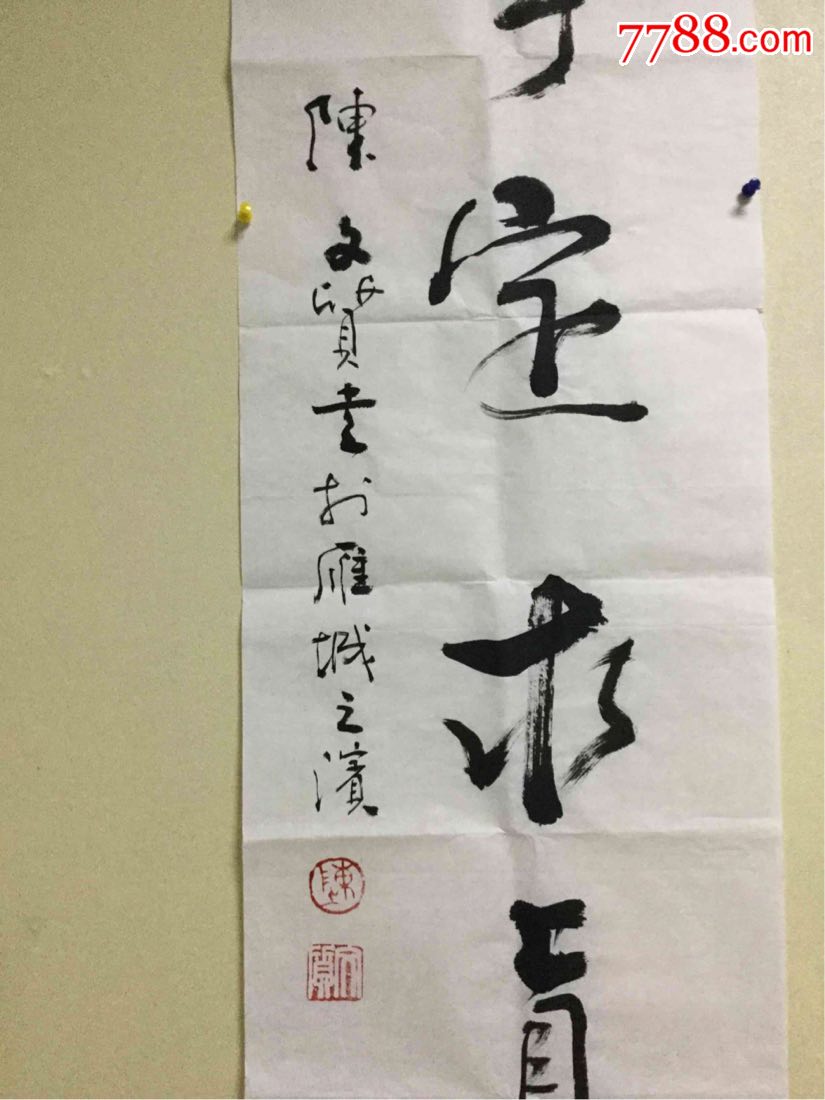 7788.com
定求真
陳文賢書於雁城之濱
陳
文賢